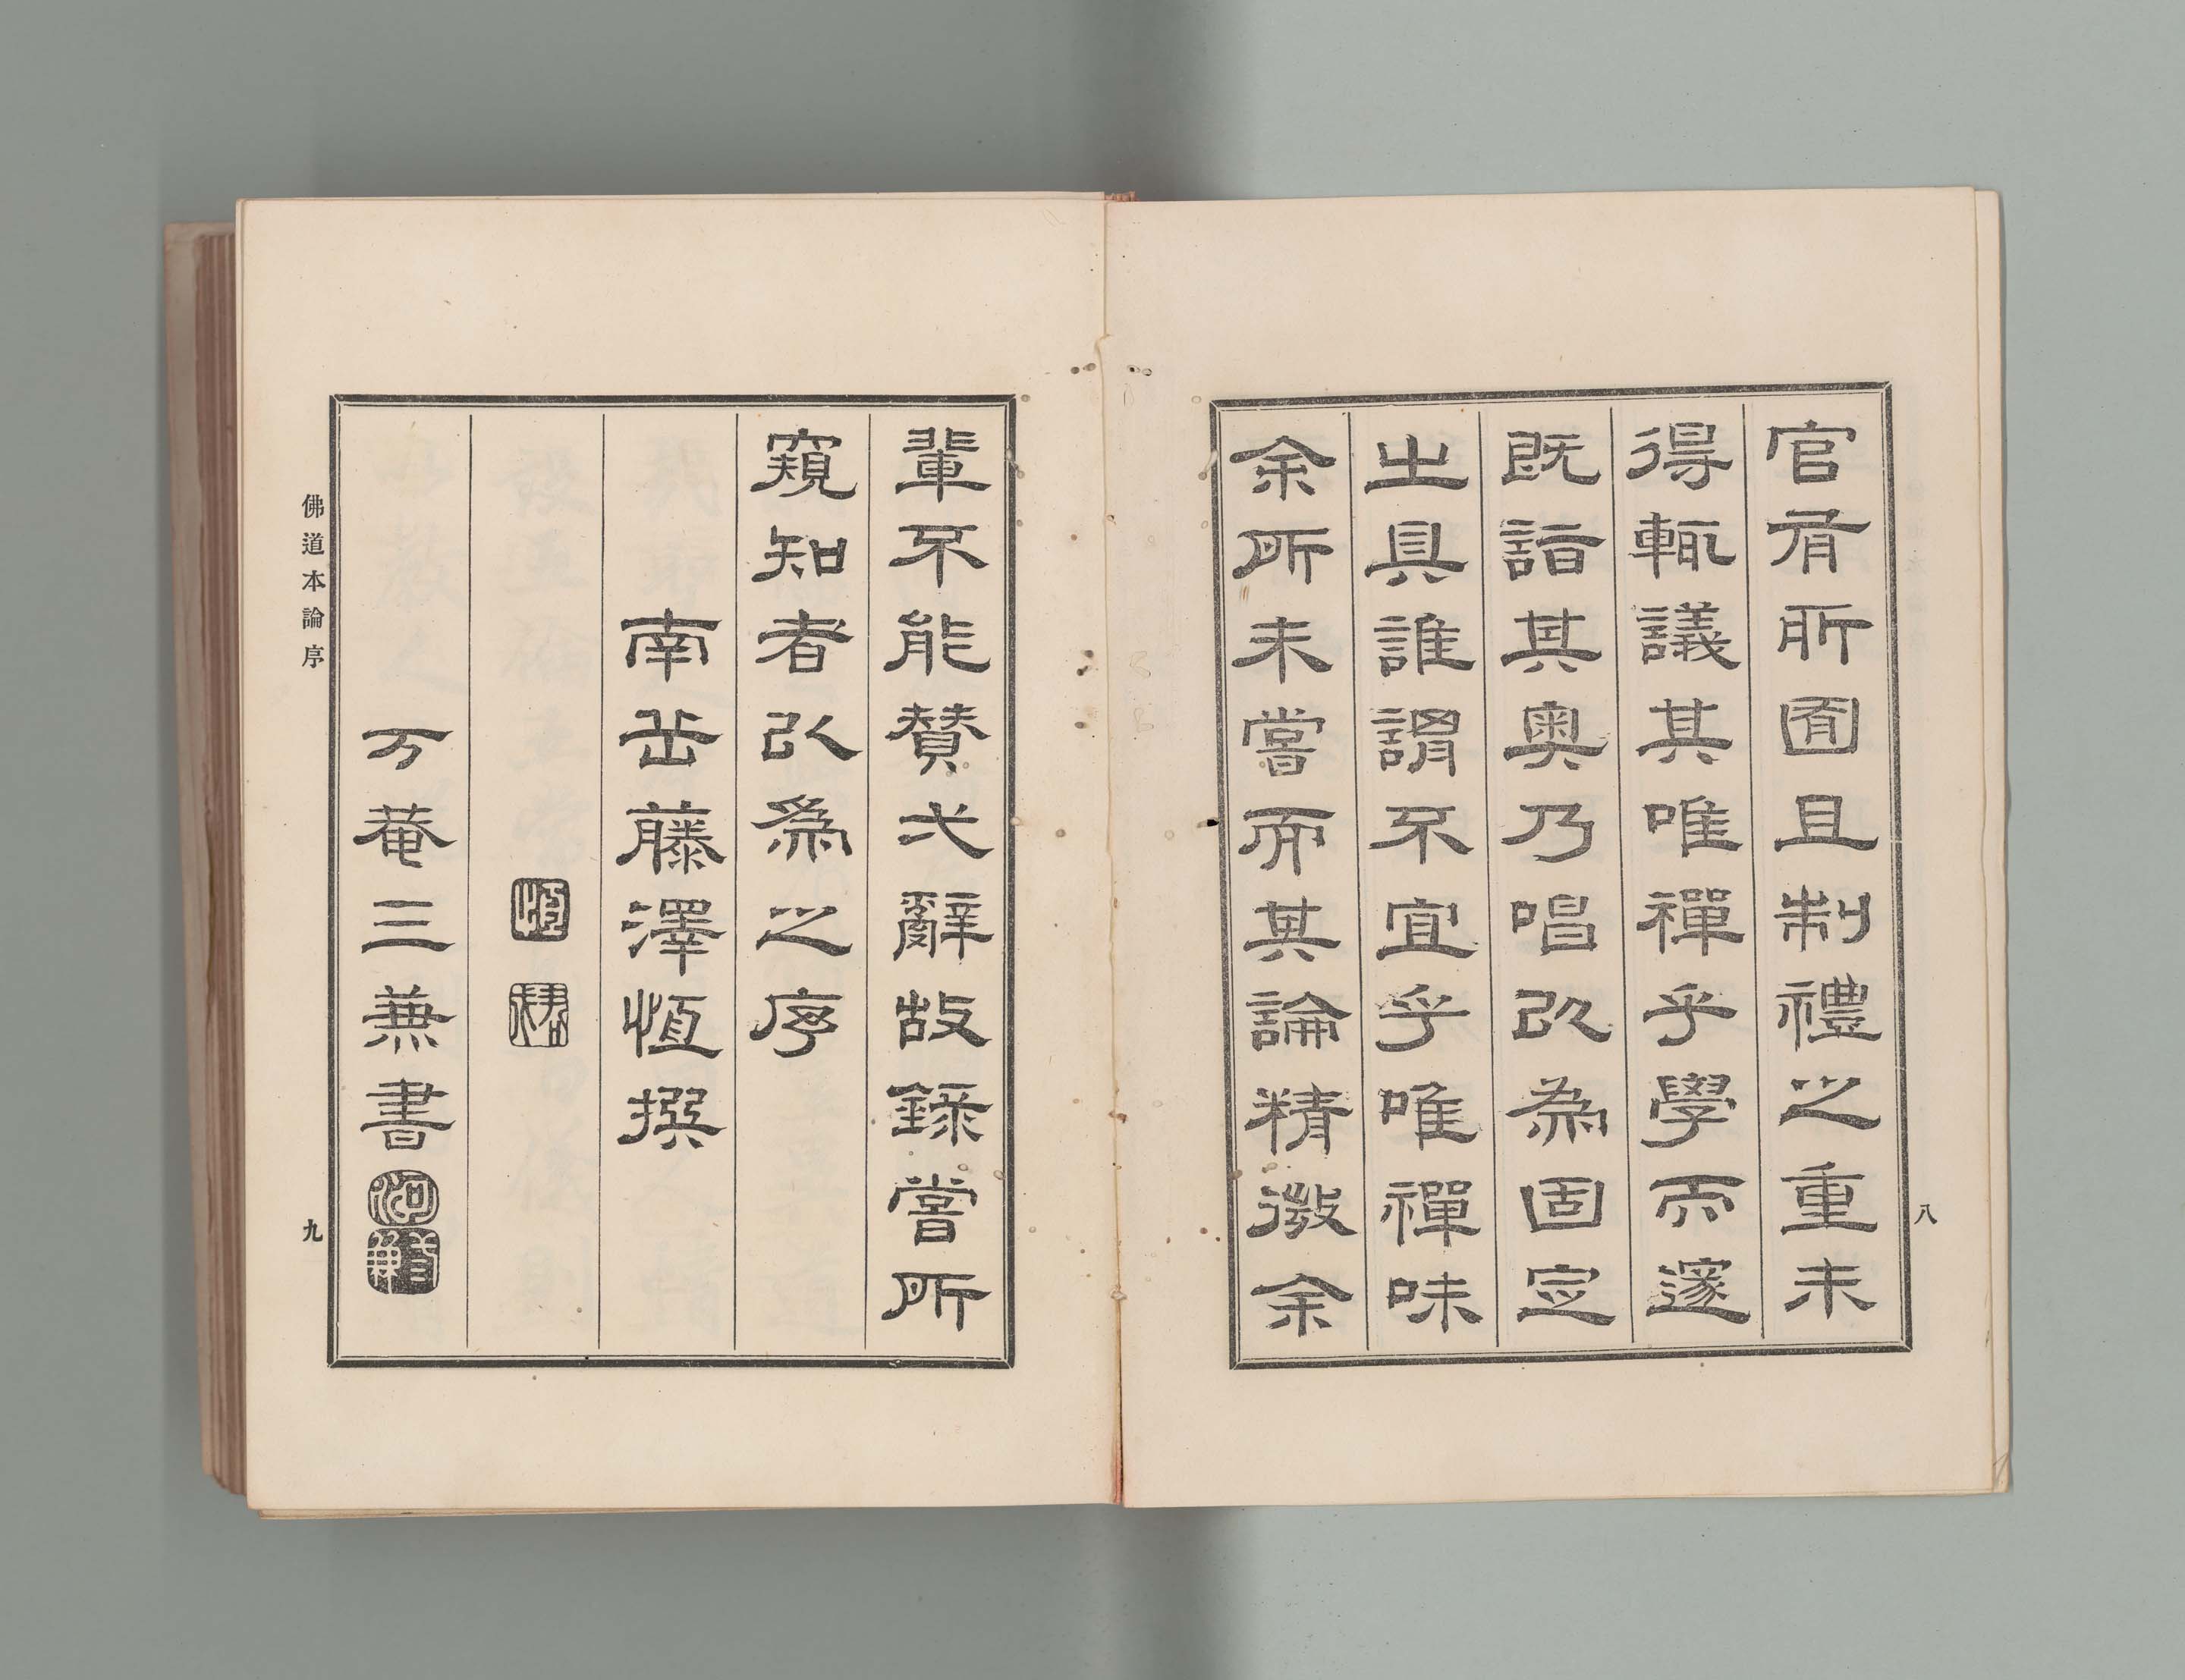 八
官有所囿且制禮之重未
得輒議其唯禪乎學而邃
既詣其奥乃唱以爲固定
之具誰謂不宜乎唯禪味
余所未嘗而其論精微余
輩不能賛弌辭故錄嘗所
窺知者以爲之序
南岳藤澤恒撰
万菴三兼書
佛道本論序
九